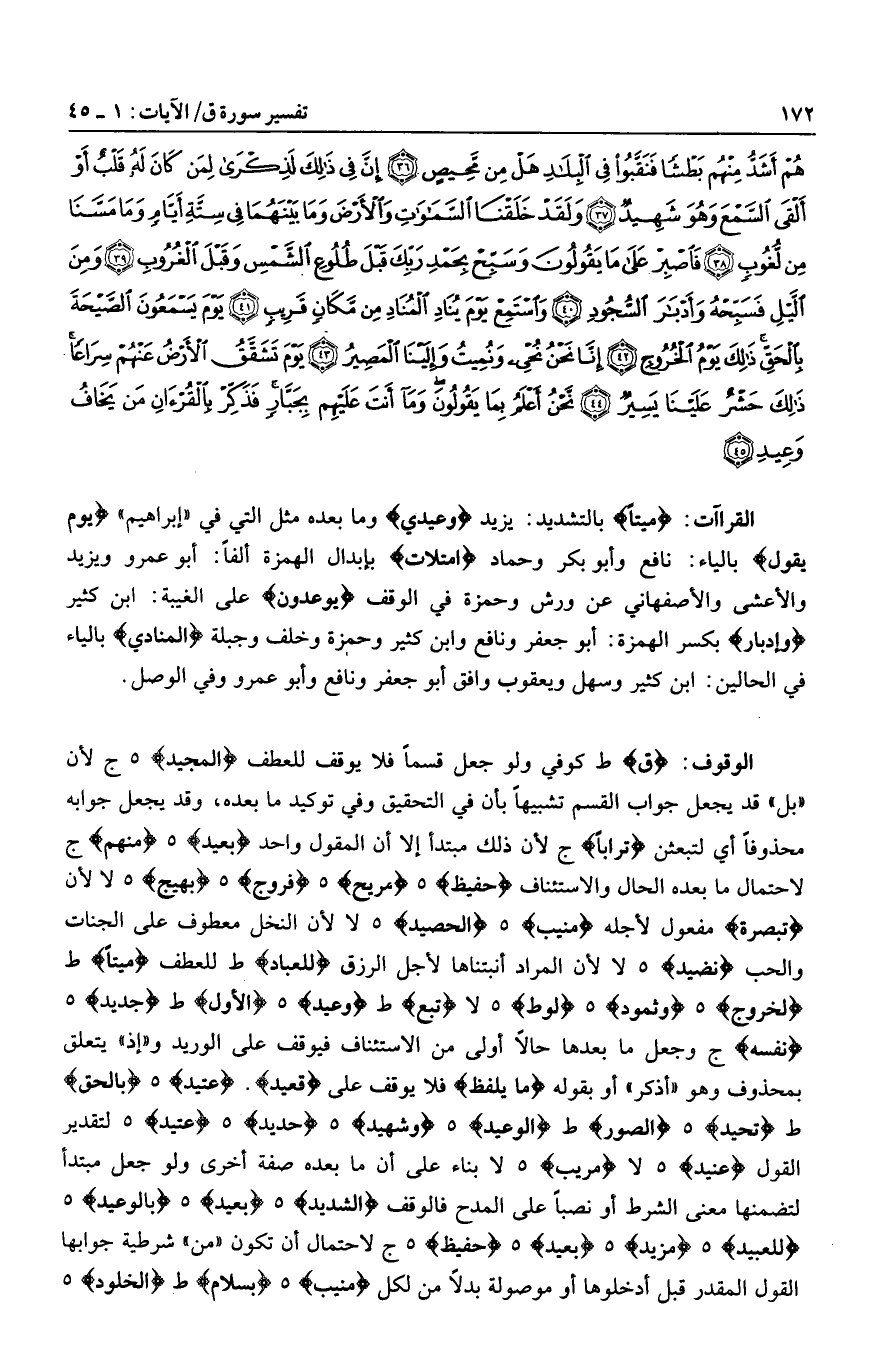 ١٧٢ تفسير سورة ق/ الآيات: ١ ـ ٤٥
هُمْ أَشَدُّ مِنْهُم بَطْشًا فَنَقَّبُوا۟ فِى ٱلْبِلَـٰدِ هَلْ مِن مَّحِيصٍ ﴿٣٦﴾ إِنَّ فِى ذَٰلِكَ لَذِكْرَىٰ لِمَن كَانَ لَهُۥ قَلْبٌ أَوْ
أَلْقَى ٱلسَّمْعَ وَهُوَ شَهِيدٌ ﴿٣٧﴾ وَلَقَدْ خَلَقْنَا ٱلسَّمَـٰوَٰتِ وَٱلْأَرْضَ وَمَا بَيْنَهُمَا فِى سِتَّةِ أَيَّامٍ وَمَا مَسَّنَا
مِن لُّغُوبٍ ﴿٣٨﴾ فَٱصْبِرْ عَلَىٰ مَا يَقُولُونَ وَسَبِّحْ بِحَمْدِ رَبِّكَ قَبْلَ طُلُوعِ ٱلشَّمْسِ وَقَبْلَ ٱلْغُرُوبِ ﴿٣٩﴾ وَمِنَ
ٱلَّيْلِ فَسَبِّحْهُ وَأَدْبَـٰرَ ٱلسُّجُودِ ﴿٤٠﴾ وَٱسْتَمِعْ يَوْمَ يُنَادِ ٱلْمُنَادِ مِن مَّكَانٍ قَرِيبٍ ﴿٤١﴾ يَوْمَ يَسْمَعُونَ ٱلصَّيْحَةَ
بِٱلْحَقِّ ۚ ذَٰلِكَ يَوْمُ ٱلْخُرُوجِ ﴿٤٢﴾ إِنَّا نَحْنُ نُحْىِۦ وَنُمِيتُ وَإِلَيْنَا ٱلْمَصِيرُ ﴿٤٣﴾ يَوْمَ تَشَقَّقُ ٱلْأَرْضُ عَنْهُمْ سِرَاعًا ۚ
ذَٰلِكَ حَشْرٌ عَلَيْنَا يَسِيرٌ ﴿٤٤﴾ نَّحْنُ أَعْلَمُ بِمَا يَقُولُونَ ۖ وَمَآ أَنتَ عَلَيْهِم بِجَبَّارٍ ۖ فَذَكِّرْ بِٱلْقُرْءَانِ مَن يَخَافُ
وَعِيدِ ﴿٤٥﴾
القراآت: ﴿ميتاً﴾ بالتشديد: يزيد ﴿وعيدي﴾ وما بعده مثل التي في «إبراهيم» ﴿يوم
يقول﴾ بالياء: نافع وأبو بكر وحماد ﴿امتلات﴾ بإبدال الهمزة ألفاً: أبو عمرو ويزيد
والأعشى والأصفهاني عن ورش وحمزة في الوقف ﴿يوعدون﴾ على الغيبة: ابن كثير
﴿وإدبار﴾ بكسر الهمزة: أبو جعفر ونافع وابن كثير وحمزة وخلف وجبلة ﴿المنادي﴾ بالياء
في الحالين: ابن كثير وسهل ويعقوب وافق أبو جعفر ونافع وأبو عمرو وفي الوصل.
الوقوف: ﴿ق﴾ ط كوفي ولو جعل قسماً فلا يوقف للعطف ﴿المجيد﴾ ٥ ج لأن
«بل» قد يجعل جواب القسم تشبيهاً بأن في التحقيق وفي توكيد ما بعده، وقد يجعل جوابه
محذوفاً أي لتبعثن ﴿تراباً﴾ ج لأن ذلك مبتدأ إلا أن المقول واحد ﴿بعيد﴾ ٥ ﴿منهم﴾ ج
لاحتمال ما بعده الحال والاستئناف ﴿حفيظ﴾ ٥ ﴿مريج﴾ ٥ ﴿فروج﴾ ٥ ﴿بهيج﴾ ٥ لا لأن
﴿تبصرة﴾ مفعول لأجله ﴿منيب﴾ ٥ ﴿الحصيد﴾ ٥ لا لأن النخل معطوف على الجنات
والحب ﴿نضيد﴾ ٥ لا لأن المراد أنبتناها لأجل الرزق ﴿للعباد﴾ ط للعطف ﴿ميتاً﴾ ط
﴿لخروج﴾ ٥ ﴿وثمود﴾ ٥ ﴿لوط﴾ ٥ لا ﴿تبع﴾ ط ﴿وعيد﴾ ٥ ﴿الأول﴾ ط ﴿جديد﴾ ٥
﴿نفسه﴾ ج وجعل ما بعدها حالاً أولى من الاستئناف فيوقف على الوريد و«إذ» يتعلق
بمحذوف وهو «أذكر» أو بقوله ﴿ما يلفظ﴾ فلا يوقف على ﴿قعيد﴾. ﴿عتيد﴾ ٥ ﴿بالحق﴾
ط ﴿تحيد﴾ ٥ ﴿الصور﴾ ط ﴿الوعيد﴾ ٥ ﴿وشهيد﴾ ٥ ﴿حديد﴾ ٥ ﴿عتيد﴾ ٥ لتقدير
القول ﴿عنيد﴾ ٥ لا ﴿مريب﴾ ٥ لا بناء على أن ما بعده صفة أخرى ولو جعل مبتدأ
لتضمنها معنى الشرط أو نصباً على المدح فالوقف ﴿الشديد﴾ ٥ ﴿بعيد﴾ ٥ ﴿بالوعيد﴾ ٥
﴿للعبيد﴾ ٥ ﴿مزيد﴾ ٥ ﴿بعيد﴾ ٥ ﴿حفيظ﴾ ٥ ج لاحتمال أن تكون «من» شرطية جوابها
القول المقدر قبل أدخلوها أو موصولة بدلاً من لكل ﴿منيب﴾ ٥ ﴿بسلام﴾ ط ﴿الخلود﴾ ٥